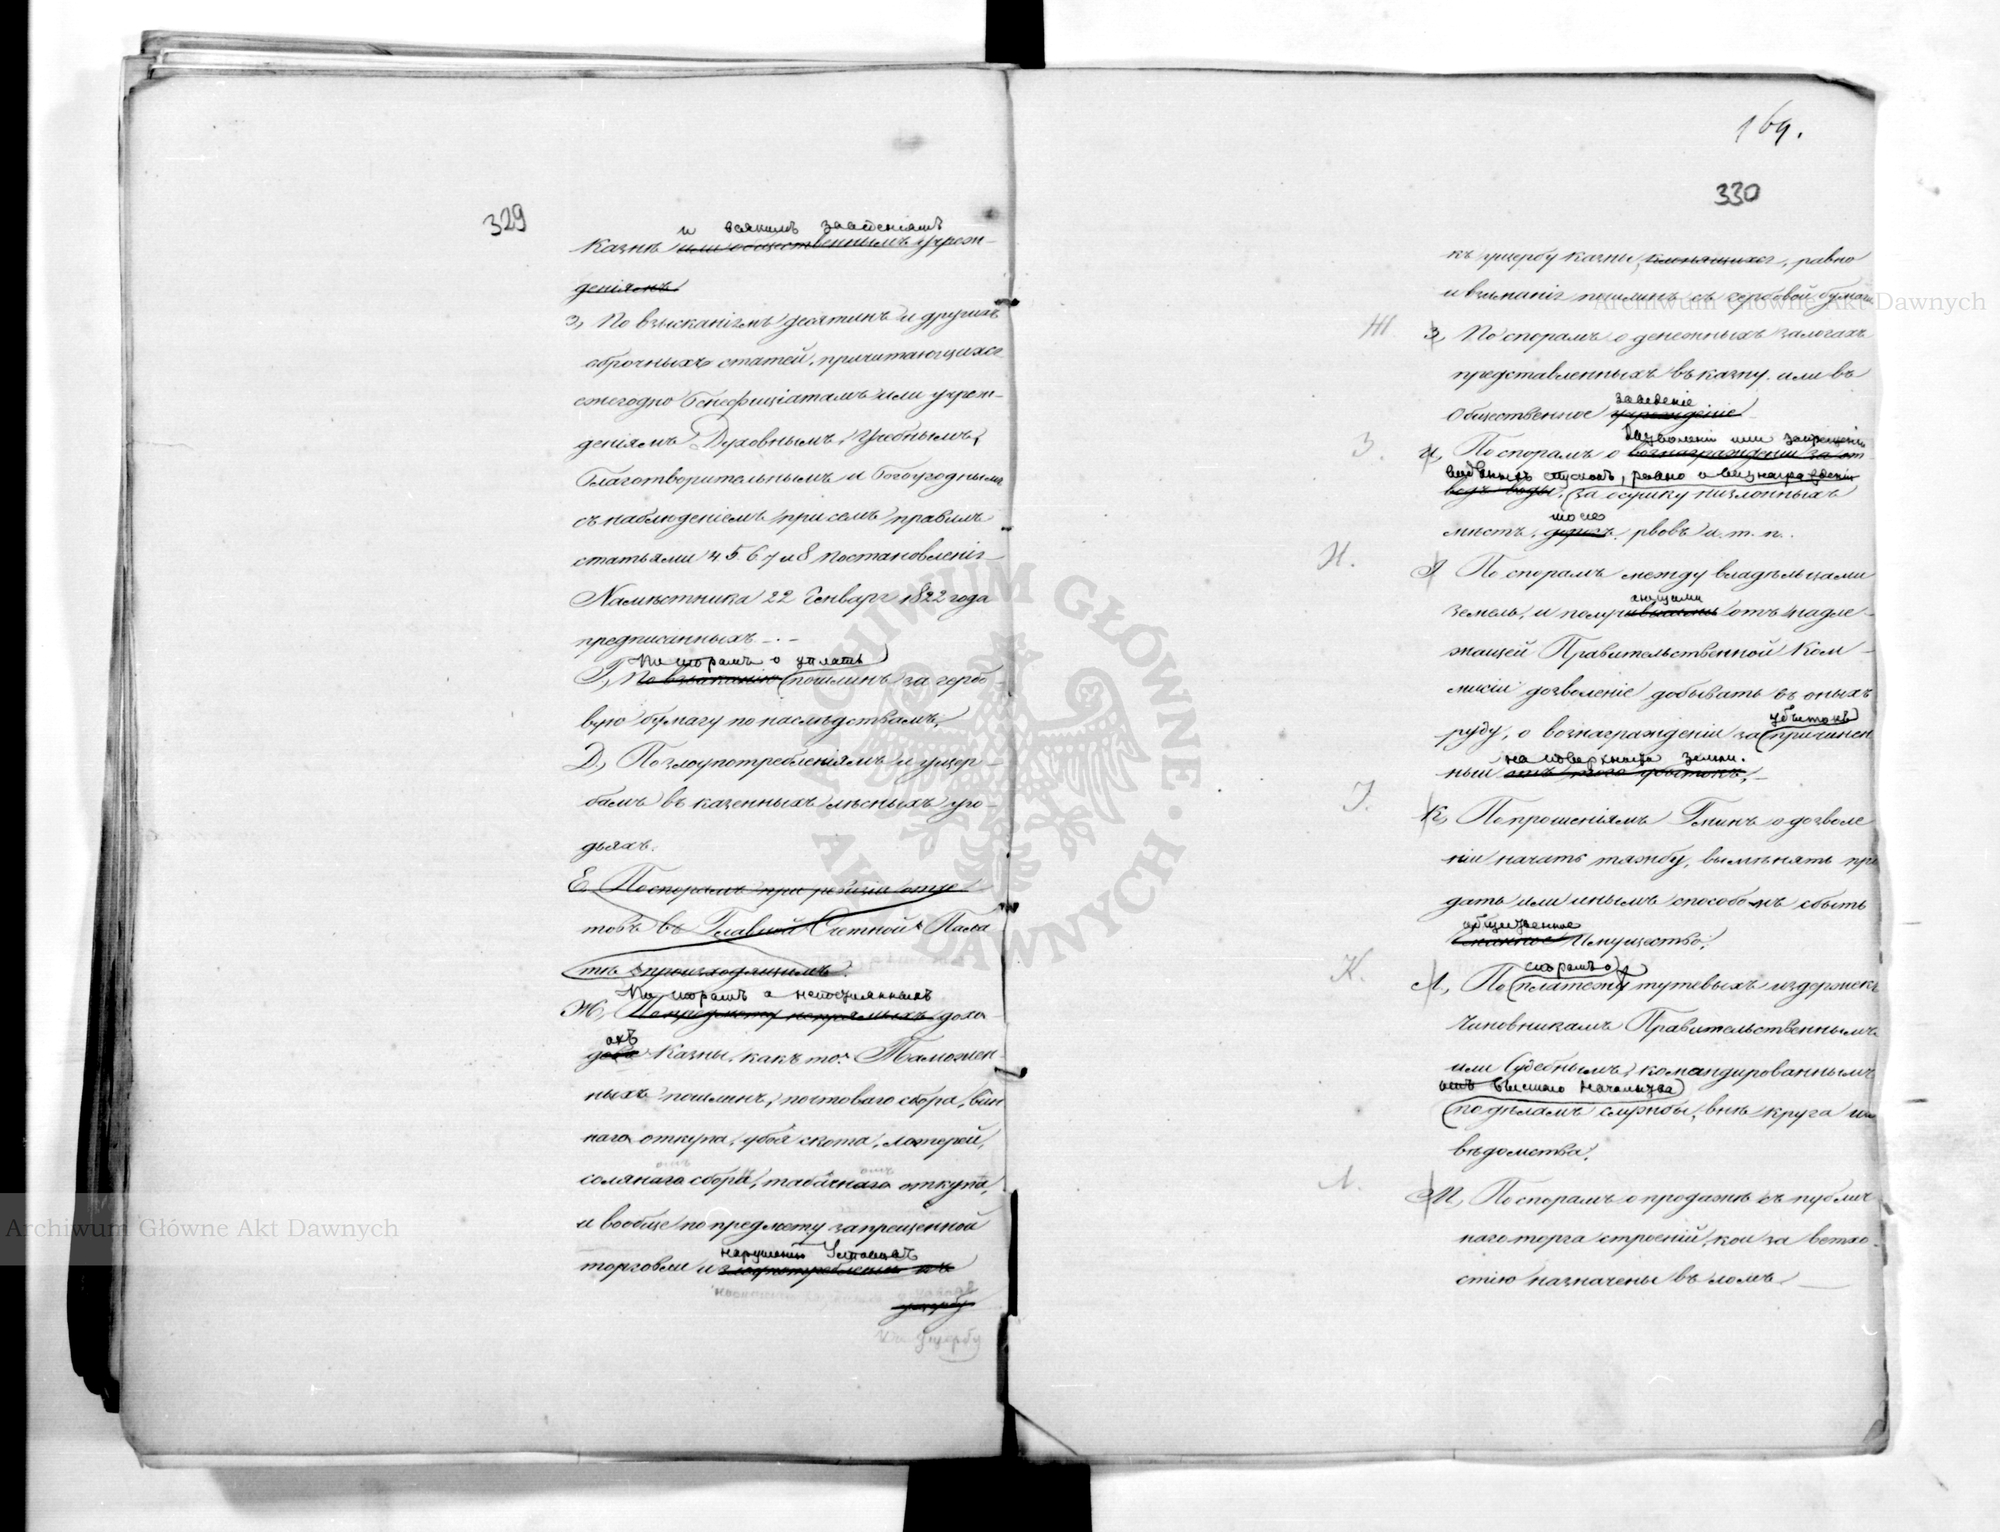 329
и всякимъ заведеніямъ
Казнѣ или общественнымъ учреж-
деніямъ
3, По взысканіямъ десятинъ и другихъ
оброчныхъ статей, причитающихся
ежегодно Бенефиціатамъ или учреж-
деніямъ Духовнымъ, Учебнымъ,
Благотворительнымъ и Богоугоднымъ
съ наблюденіемъ при семъ правилъ
статьями 4 5 6 7 и 8 постановленія
Намѣстника 22 Генваря 1822 года
предписанныхъ -.-
По спорамъ о уплатѣ
Г, По взысканію пошлинъ за гербо-
вую бумагу по наслѣдствамъ,
Д, По злоупотребленіямъ и ущер-
бамъ въ казенныхъ лѣсныхъ уго-
дьяхъ.
Е, По спорамъ при ревизіи отче-
товъ въ Главной Счетной Пала
тѣ происходящимъ.
По спорамъ о непостоянныхъ
Ж, По предмету непрямыхъ дохо-
ахъ
довъ Казны, какъ то: Таможен-
ныхъ пошлинъ, почтоваго сбора, вин
наго откупа, убоя скота, лотерей,
солянаго сбора, табачнаго откупа,
и вообще по предмету запрещенной
нарушенію Уставовъ
торговли и злоупотребленію къ
ущербу
къ ущербу
169.
330
къ ущербу казны клонящихся, равно
и взиманія пошлинъ съ гербовой бумаги
Ж З, По спорамъ о денежныхъ залогахъ
представленныхъ въ казну или въ
заведеніе
Общественное учрежденіе
дозволеніи или запрещеніи
З. И, По спорамъ о вознагражденіи за от
водяныхъ спусковъ, равно о вознагражденіи
водъ воды, за осушку низменныхъ
мѣстъ, рвовъ и. т. п.
И. І По спорамъ между владѣльцами
ающими
земель, и получившими отъ надле-
жащей Правительственной Ком-
мисіи дозволеніе добывать въ оныхъ
убытокъ
руду, о вознагражденіи за причинен
на поверхности земли.
ный отъ того убытокъ, -
І. К, По прошеніямъ Гминъ о дозволе
ніи начать тяжбу, вымѣнять про
дать или инымъ способомъ сбыть
общественное
имущество,
К. Л, По спорамъ о
платежу путевыхъ издержекъ
Чиновникамъ Правительственнымъ
или Судебнымъ, командированнымъ
отъ высшаго начальства
по дѣламъ службы, внѣ круга их
вѣдомства.
Л. М, По спорамъ о продажѣ съ публич
наго торга строеній, кои за ветхо-
стію назначены въ ломъ
Archiwum Główne Akt Dawnych
Archiwum Główne Akt Dawnych
ARCHIWUM GŁÓWNE · AKT DAWNYCH ·